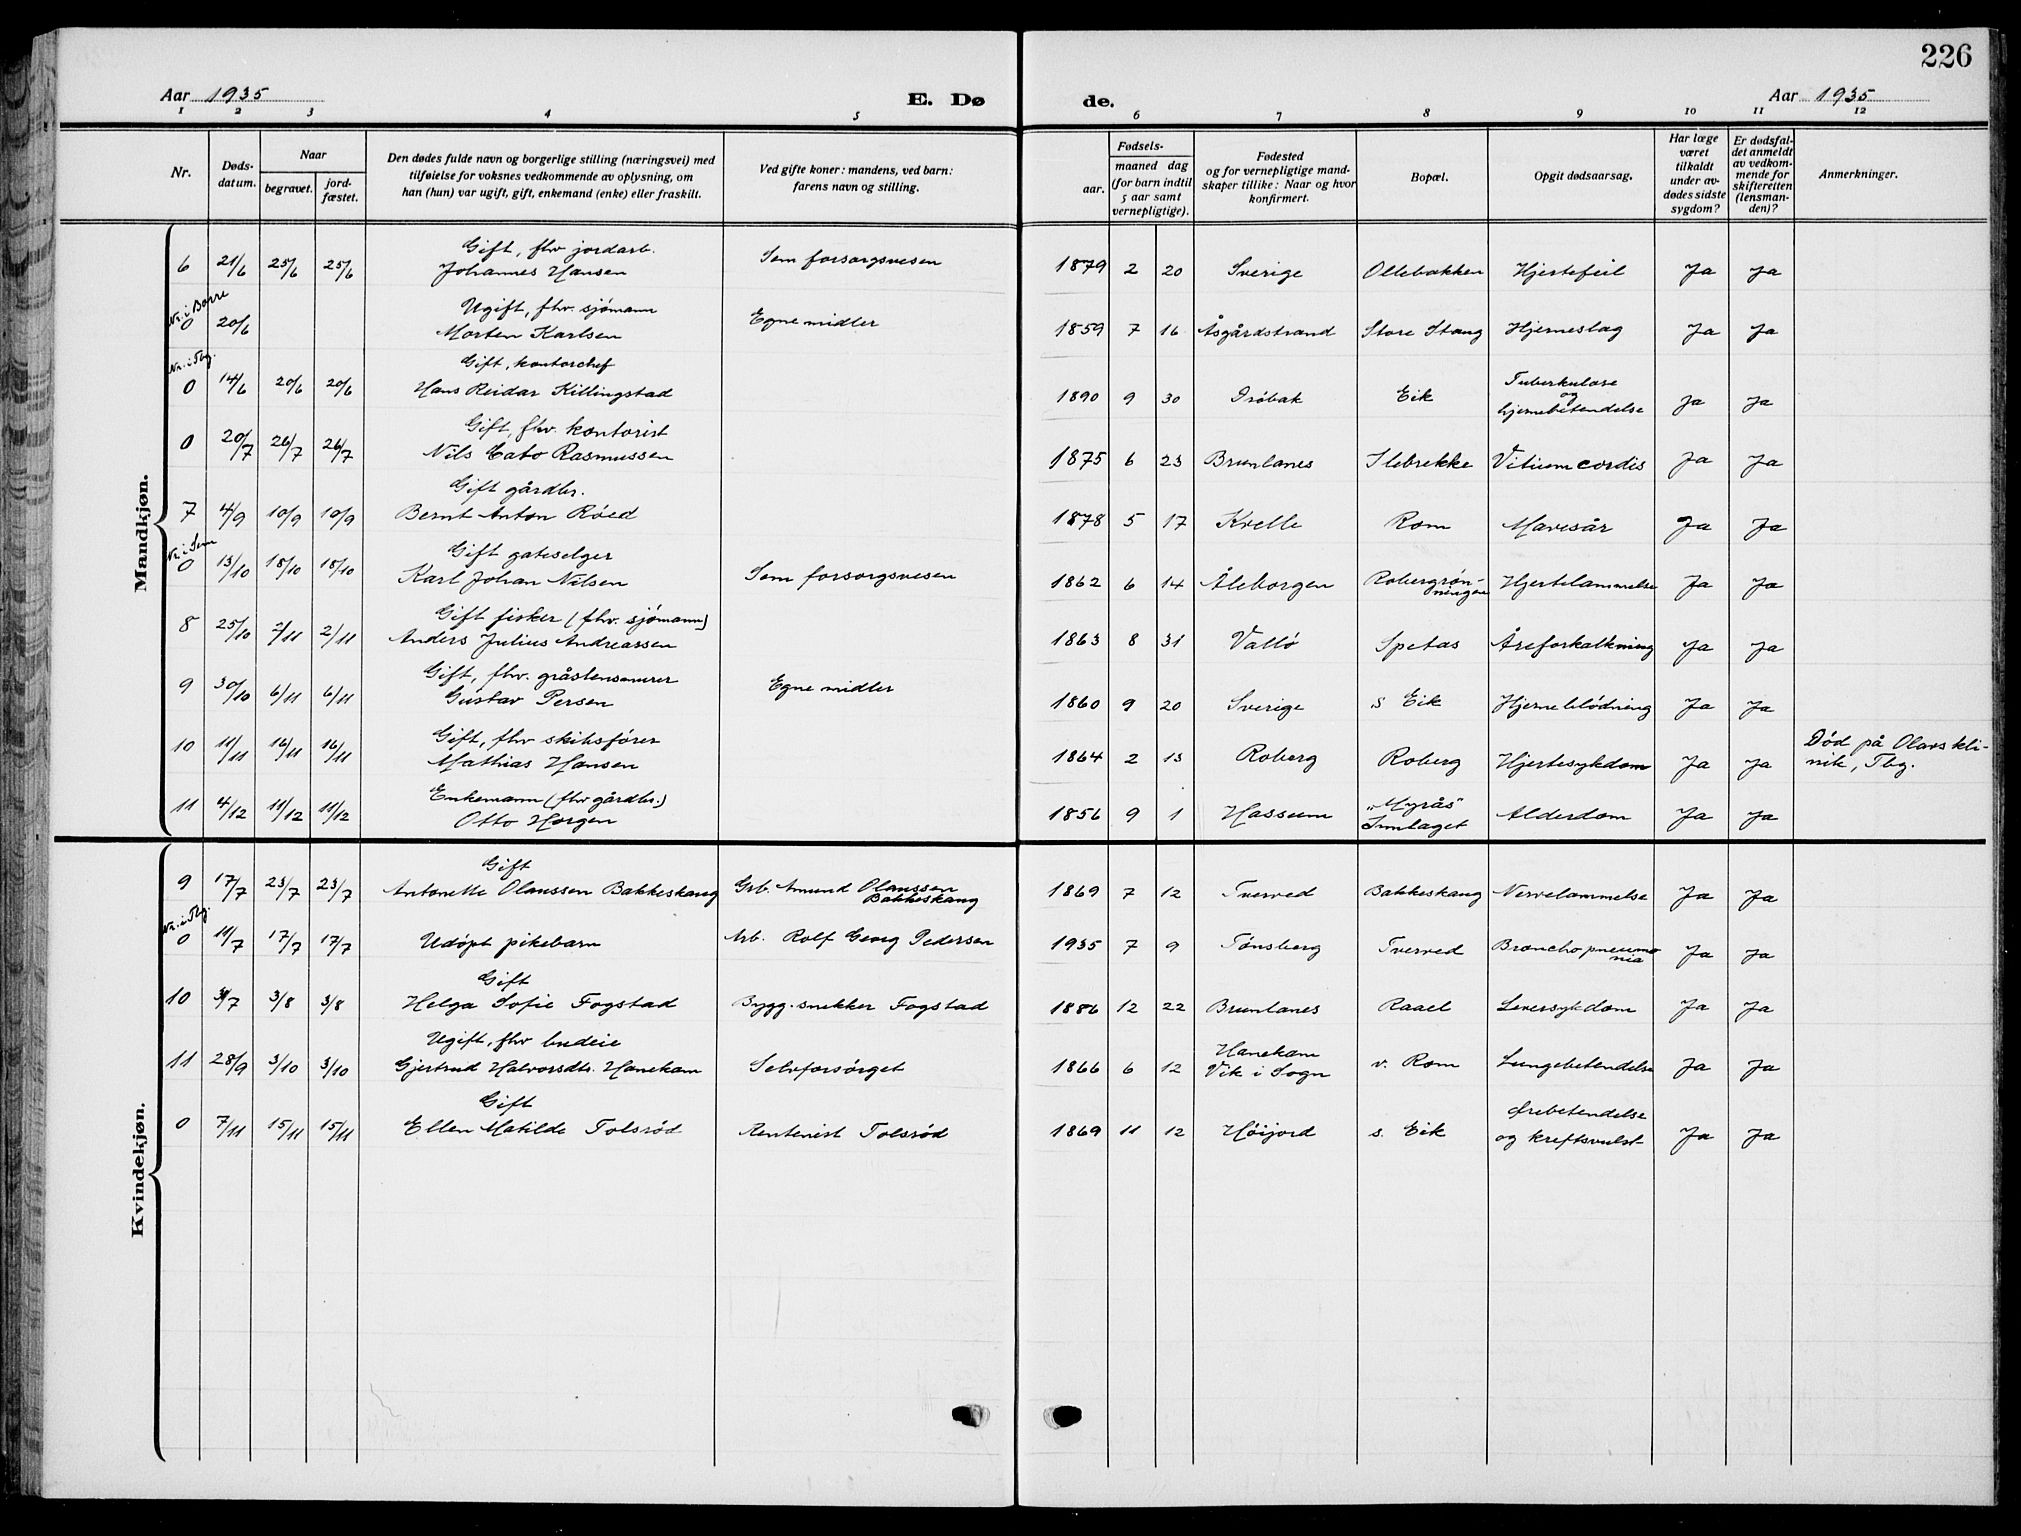 226
Aar 1935
E. Dø
de.
Aar 1935
1 2 3 4 5
6 7 8 9 10 11 12
Nr.
Døds-
datum.
Naar
begravet.
jord-
fæstet.
Den dødes fulde navn og borgerlige stilling (næringsvei) med
tilføielse for voksnes vedkommende av oplysning, om
han (hun) var ugift, gift, enkemand (enke) eller fraskilt.
Ved gifte koner: mandens, ved barn:
farens navn og stilling.
Fødsels-
aar.
maaned dag
(for barn indtil
5 aar samt
vernepligtige).
Fødested
og for vernepligtige mand-
skaper tillike: Naar og hvor
konfirmert.
Bopæl.
Opgit dødsaarsag.
Har læge
været
tilkaldt
under av-
dødes sidste
sygdom?
Er dødsfal-
det anmeldt
av vedkom-
mende for
skifteretten
(lensman-
den)?
Anmerkninger.
Mandkjøn.
Gift, fhv jordarb.
6 21/6 25/6 25/6 Johannes Hansen Sem forsorgsvesen 1879 2 20 Sverige Ollebakken Hjertefeil Ja Ja
Nr. i Borre
Ugift, fhv. sjømann
0 20/6 Morten Karlsen Egne midler 1859 7 16 Åsgårdstrand Store Stang Hjerneslag Ja Ja
Nr. i Tbg.
Gift, kontorchef
0 14/6 20/6 20/6 Hans Reidar Killingstad 1890 9 30 Drøbak Eik Tuberkulose
og
hjernebetendelse Ja Ja
Gift, fhv. kontorist
0 20/7 26/7 26/7 Nils Cato Rasmussen 1875 6 23 Brunlanes Ilebrekke Vitium cordis Ja Ja
Gift gårdbr.
7 4/9 10/9 10/9 Bernt Anton Røed 1878 5 17 Kvelle Rom Mavesår Ja Ja
Nr. i Sem
Gift gateselger
0 13/10 18/10 18/10 Karl Johan Nilsen Sem forsorgsvesen 1862 6 14 Åleborgen Robergrøn-
ningen Hjertelammelse Ja Ja
Gift fisker (fhv. sjømann)
8 25/10 2/11 2/11 Anders Julius Andreassen 1863 8 31 Vallø Spetas Åreforkalkning Ja Ja
Gift, fhv. gråstensmurer
9 30/10 6/11 6/11 Gustav Persen Egne midler 1860 9 20 Sverige S Eik Hjerneblødning Ja Ja
Gift, fhv skibsfører
10 11/11 16/11 16/11 Mathias Hansen 1864 2 13 Roberg Roberg Hjertesykdom Ja Ja Død på Olavs kli-
nik, Tbg.
Enkemann (fhv gårdbr.)
11 4/12 11/12 11/12 Otto Horgen 1856 9 1 Hassum "Myrås"
Innlaget Alderdom Ja Ja
Kvindekjøn.
Gift
9 17/7 23/7 23/7 Antonette Olaussen Bakkeskaug Grb. Amund Olaussen
Bakkeskaug 1869 7 12 Tverved Bakkeskaug Nervelammelse Ja Ja
Nr. i Tbg.
0 11/7 17/7 17/7 Udøpt pikebarn Arb. Rolf Georg Pedersen 1935 7 9 Tønsberg Tverved Bronchopneumo
nia Ja Ja
Gift
10 31/7 3/8 3/8 Helga Sofie Fogstad Bygg.snekker Fogstad 1886 12 22 Brunlanes Raael Leversykdom Ja Ja
Ugift, fhv budeie
11 28/9 3/10 3/10 Gjertrud Halvorsdtr. Hanekam Selvforsørget 1866 6 12 Hanekam
Vik i Sogn v. Rom Lungebetendelse Ja Ja
Gift
0 7/11 15/11 15/11 Ellen Matilde Tolsrød Rentenist Tolsrød 1869 11 12 Høijord s. Eik Ørebetendelse
og kreftsvulst Ja Ja